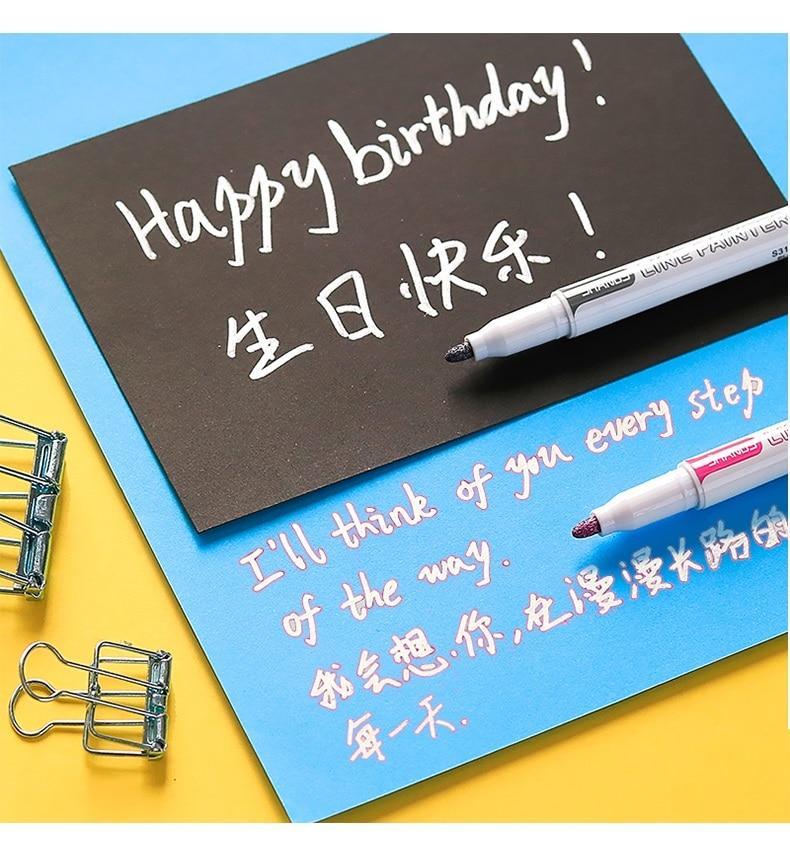 Happy birthday!
生日快乐!
SHANDS LINE PAINTER
S31
I'll think of you every step
SHANDS
of the way.
我会想你,在漫漫长路的
每一天.